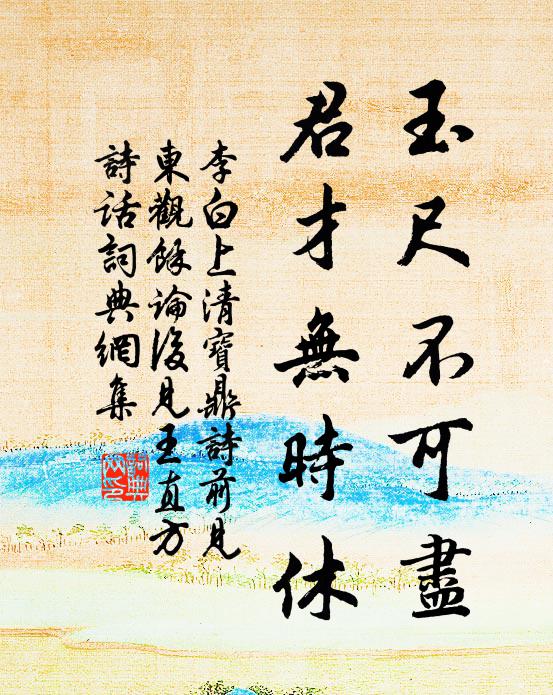 玉尺不可盡
君才無時休
李白上清寶鼎詩前見
東觀餘論後見王直方
詩话詞典網集